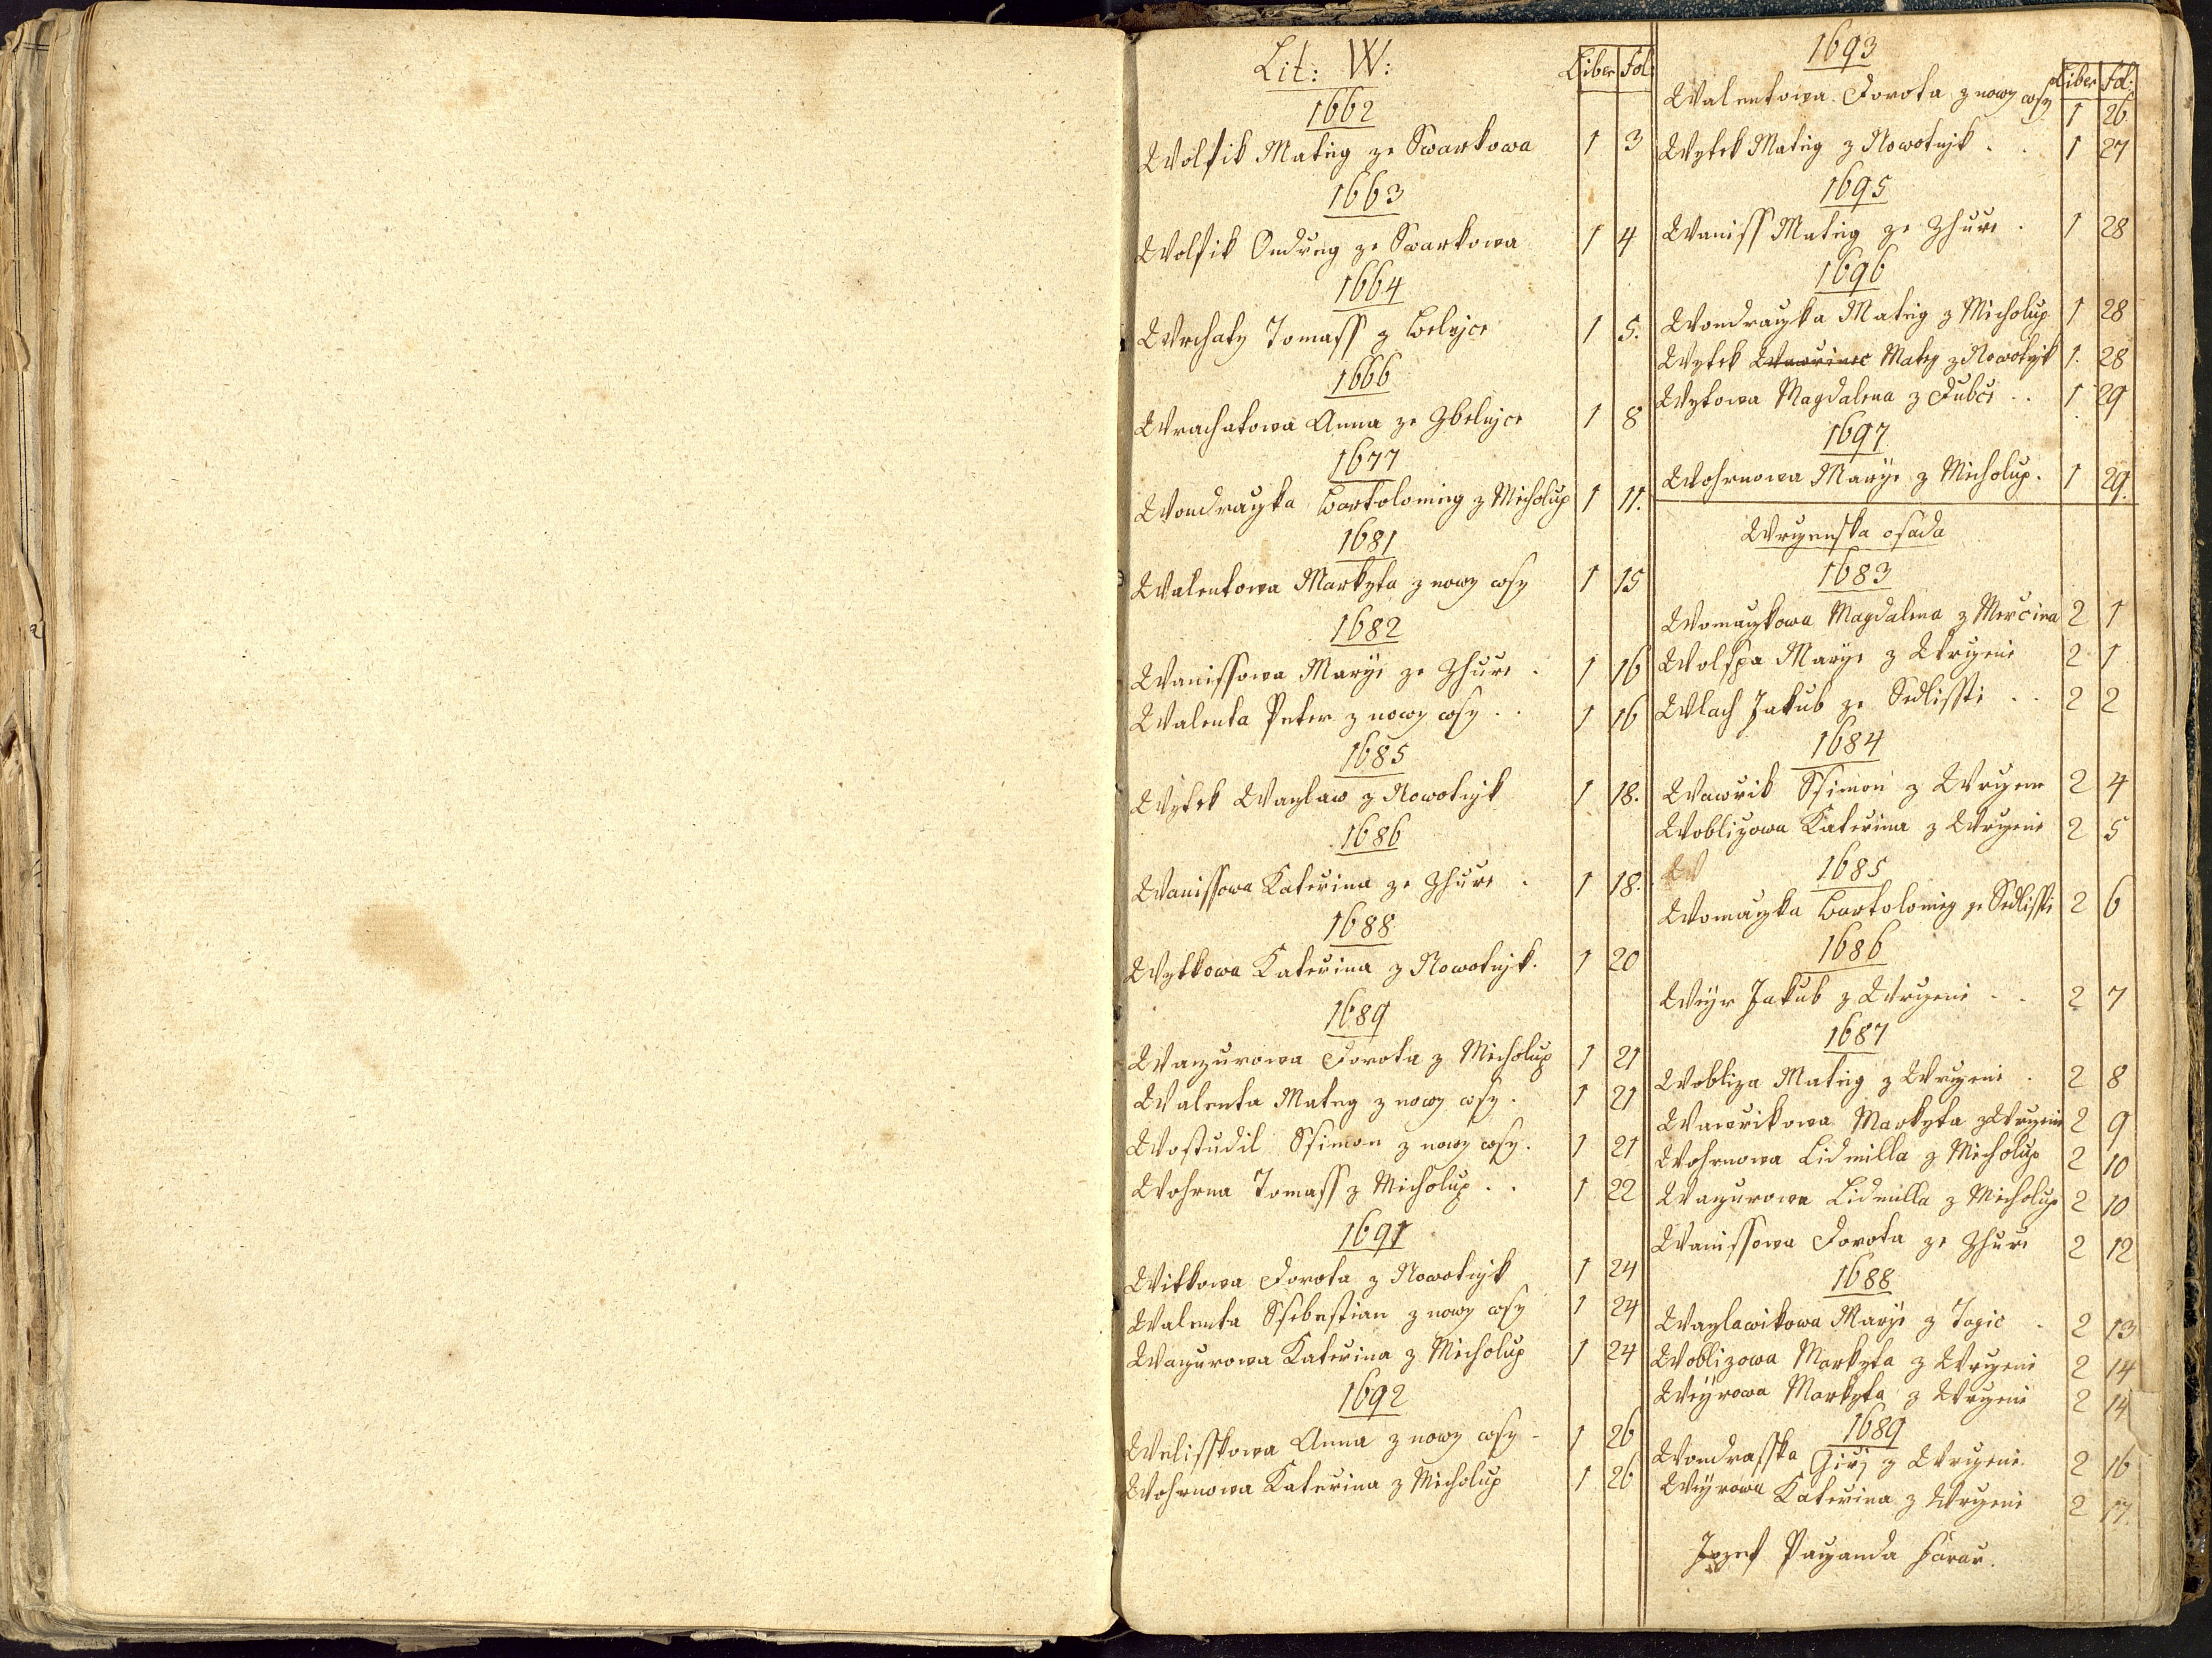 Lit: W:
Liber Fol:
1662
Wolfik Mateg ze Swarkowa 1 3
1663
Wolfik Ondreg ze Swarkowa 1 4
1664
Wrchaty Tomass z Belyce 1 5.
1666
Wrachatowa Anna ze Zbelyce 1 8
1677
Wondraczka Bartolomeg z Micholup 1 11.
1681
Walentowa Markyta z nowy wsy 1 15
1682
Wanissowa Marye ze Zhuře . 1 16
Walenta Peter z nowy wsy . . 1 16
1685
Wytek Waczlaw z Nowotnjk 1 18.
1686
Wanissowa Kateřina ze Zhuře . 1 18.
1688
Wytkowa Kateřina z Nowotnjk. 1 20
1689
Waczurowa Dorota z Micholup 1 21
Walenta Mateg z nowy wsy . 1 21
Wostudil Ssimon z nowy wsy. 1 21
Wohrna Tomass z Micholup . . 1 22
1691
Witkowa Dorota z Nowotnjk 1 24
Walenta Ssebestian z nowy wsy 1 24
Waczurowa Kateřina z Micholup 1 24
1692
Welisskowa Anna z nowy wsy - 1 26
Wohrnowa Kateřina z Micholup 1 26
1693
Liber Fol:
Walentowa Dorota z nowy wsy 1 26.
Wytek Mateg z Nowotnjk . . 1 27
1695
Waniss Mateg ze Zhuře . 1 28
1696
Wondraczka Mateg z Micholup 1 28
Wytek Wawřinec Mateg z Nowotnjk 1. 28
Wytowa Magdalena z Dubče . . 1 29
1697
Wohrnowa Marye z Micholup. 1 29.
Wrczenska osada
1683
Womaczkowa Magdalena z Merčina 2 1
Wolfpa Marye z Wrczenie 2 1
Wlach Jakub ze Sedlisstie . . 2 2
1684
Wawrik Ssimon z Wrczene 2 4
Woblizowa Kateřina z Wrczenie 2 5
W 1685
Womaczka Bartolomeg ze Sedlisstie 2 6
1686
Weyr Jakub z Wrczenie . . 2 7
1687
Wobliza Mateg z Wrczenie . 2 8
Wawrikowa Markyta z Wrczenie 2 9
Wohrnowa Lidmilla z Micholup 2 10
Waczurowa Lidmilla z Micholup 2 10
Wanissowa Dorota ze Zhuře 2 12
1688
Waczlawikowa Marye z Togic . 2 13
Woblizowa Markyta z Wrczenie 2 14
Weyrowa Markyta z Wrczenie 2 14
1689
Wondrasska Giřj z Wrczenie. 2 16
Weyrowa Kateřina z Wrczenie 2 17.
Jozef Paczanda Farar.